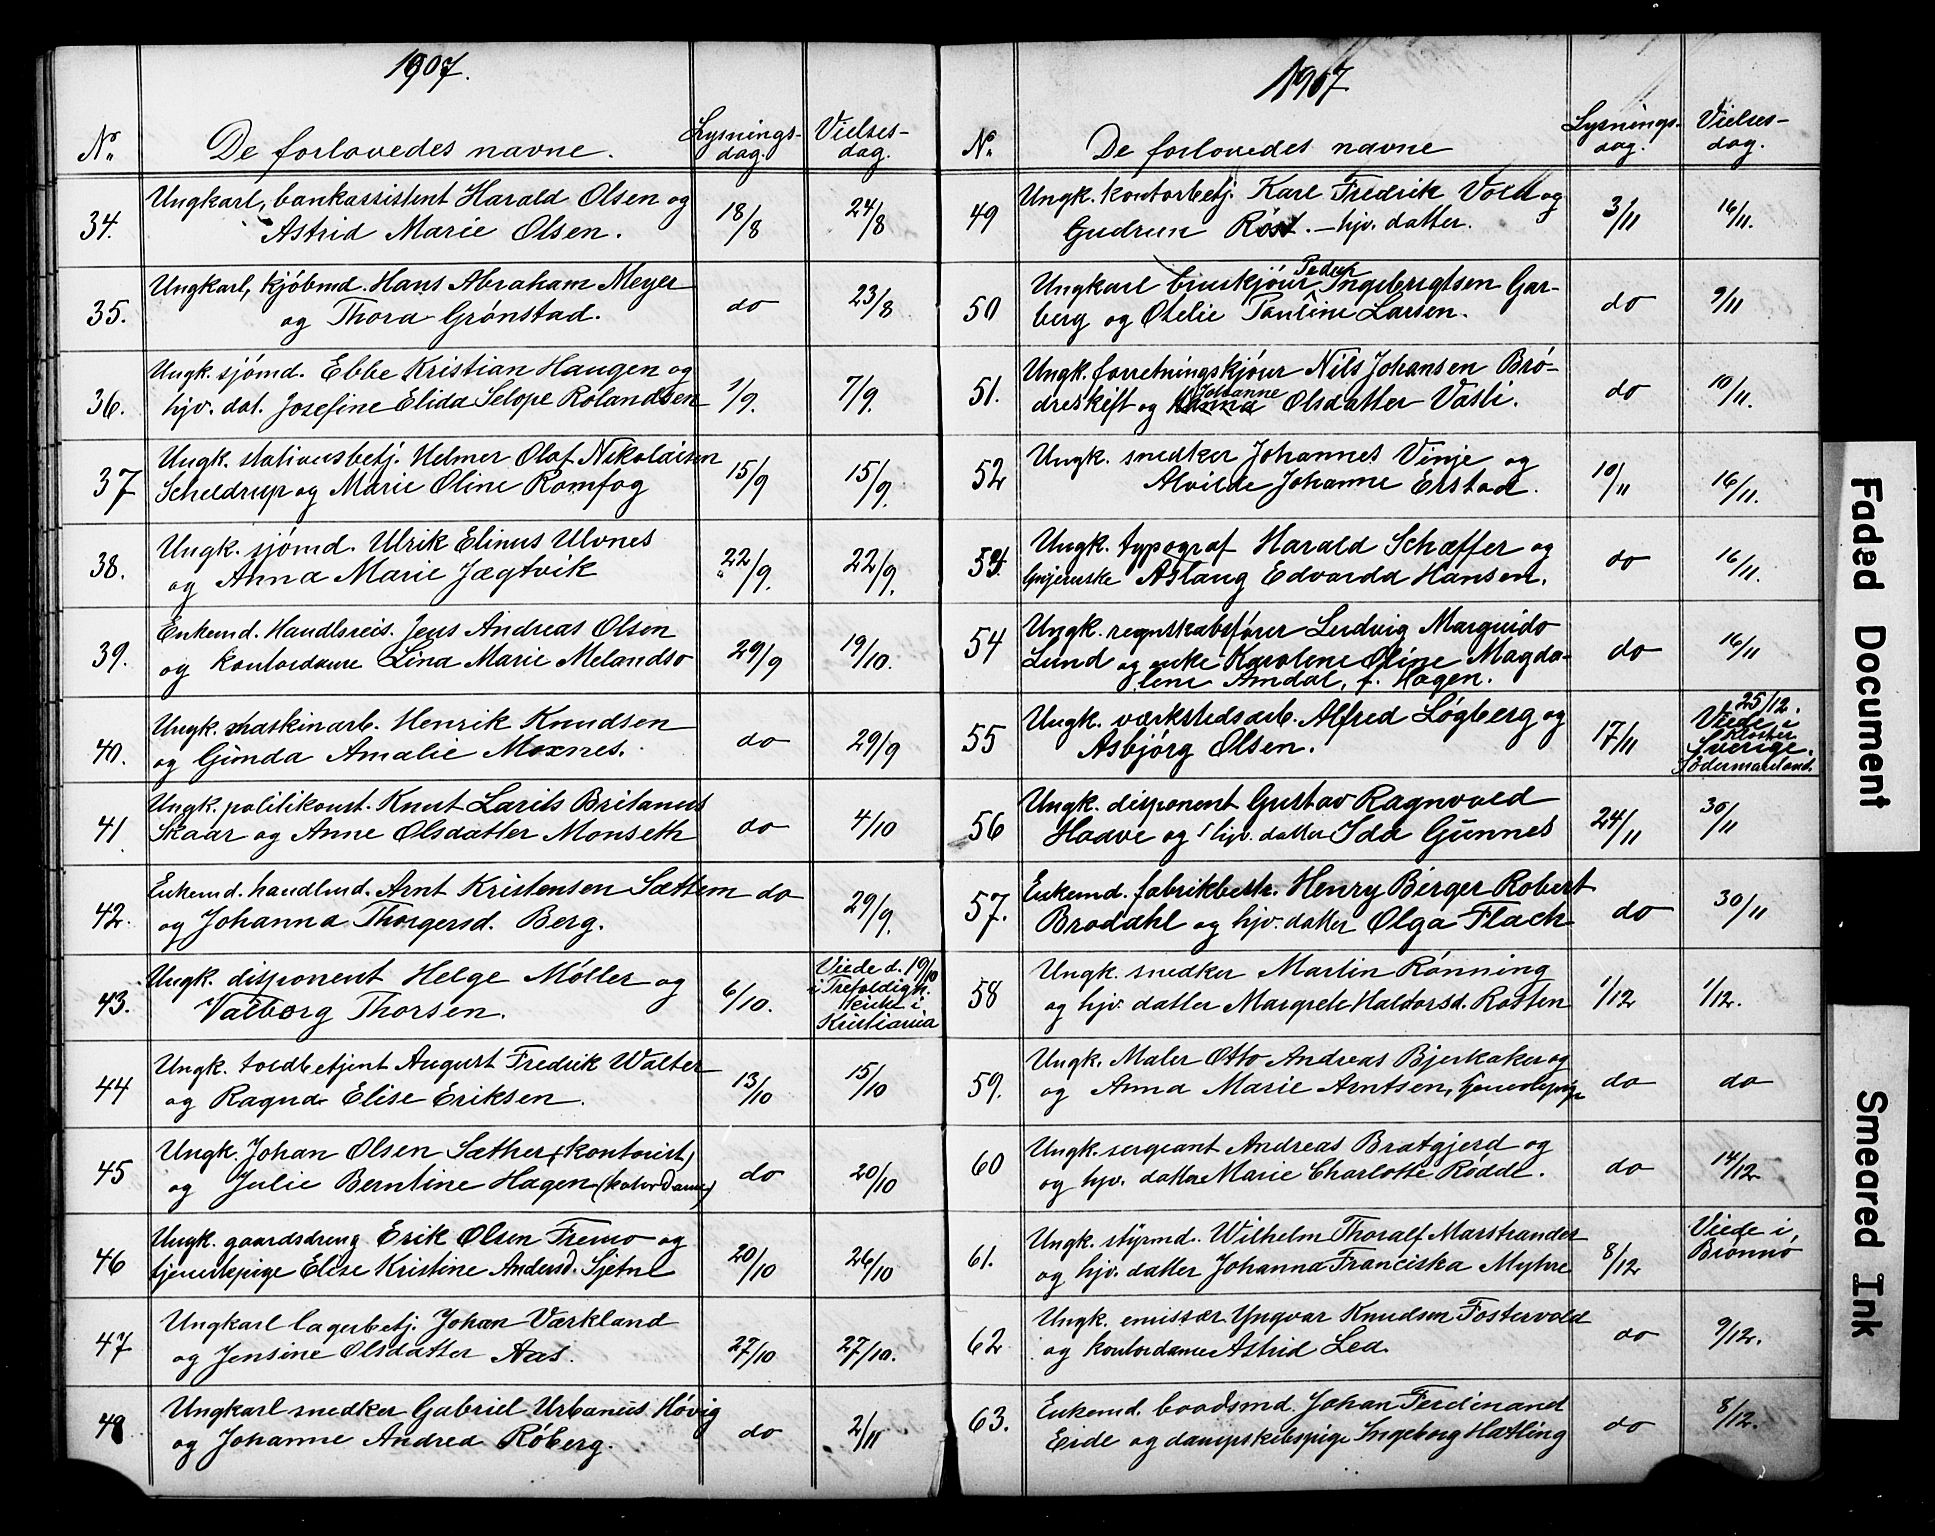 1907.
No. De forlovedes navne. Lysnings-dag. Vielses-dag.
34. Ungkarl, bankassistent Harald Olsen og 18/8 24/8
Astrid Marie Olsen.
35. Ungkarl, kjöbmd. Hans Abraham Meyer do 23/8
og Thora Grönstad.
36. Ungk. sjömd. Ebbe Kristian Haugen og 1/9. 7/9.
hjv. dat. Josefine Elida Selope Rolandsen
37 Ungk. stationsbetj. Helmer Olaf Nikolaisen 15/9 15/9.
Scheldrup og Marie Oline Romfog
38. Ungk. sjömd. Ulrik Elinus Ulvnes 22/9. 22/9.
og Anna Marie Jægtvik
39. Enkemd. Handlsreis. Jens Andreas Olsen 29/9 19/10.
og kontordame Lina Marie Melandsö
40. Ungk. maskinarb. Henrik Knudsen do 29/9
og Gunda Amalie Moxnes.
41. Ungk. politikonst. Knut Larits Britanus do 4/10
Skaar og Anne Olsdatter Monseth
42. Enkemd. handlmd. Arnt Kristensen Sættem do 29/9.
og Johanna Thorgersd. Berg.
43. Ungk. disponent Helge Möller og 6/10. Viede d. 19/10
Valborg Thorsen. i Trefoldigh.
kirke i
Kristiania
44 Ungk. toldbetjent August Fredrik Walter 13/10 15/10
og Ragna Elise Eriksen.
45 Ungk. Johan Olsen Sæther (kontorist) do 20/10
og Julie Berntine Hagen (kontordame)
46 Ungk. gaardsdreng Erik Olsen Fremo og 20/10 26/10
tjenestepige Elise Kristine Andersd. Sjetne
47 Ungkarl lagerbetj. Johan Værkland 27/10 27/10.
og Jensine Olsdatter Aas.
48 Ungkarl snedker Gabriel Urbanus Hövig do 2/11
og Johanne Andrea Röberg.
1907
No. De forlovedes navne Lysnings-dag. Vielses-dag.
49 Ungk. kontorbetj. Karl Fredrik Vold og 3/11 16/11.
Gudrun Röst. – hjv. datter.
50 Ungkarl bruskjöur Peder Ingebrigtsen Gar- do 9/11
berg og Otelie Pauline Larsen.
51. Ungk. forretningskjöur Nils Johansen Brö- do 10/11.
dreskift og Johanne Olsdatter Vasli.
52 Ungk. snedker Johannes Vinje og 10/11 16/11.
Alvilde Johanne Erstad.
53. Ungk. typograf Harald Schæffer og do 16/11.
Aslaug Edvarda Hansen.
54 Ungk. regnskabsförer Ludvig Marguido do 16/11
Lund og enke Karolene Oline Magda-
lene Amdal, f. Hagen.
55 Ungk. værkstedsarb. Alfred Lögberg og 17/11 25/12.
Asbjörg Olsen. Viede i
Kloster
Sverige.
Södermanland.
56 Ungk. disponent Gustav Ragnvald 24/11 30/11
Haave og hjv. datter Ida Gunnes
57. Enkemd. fabrikbestr. Henry Birger Robert do 30/11
Brodahl og hjv. datter Olga Flach
58 Ungk. snedker Martin Rönning 1/12 1/12.
og hjv. datter Margrete Haldorsd. Rotten
59. Ungk. Maler Otto Andreas Bjerkaker og do do
og Anna Marie Arntsen, tjenestepige
60 Ungk. sergeant Andreas Bratgjerd og do 14/12
og hjv. datter Marie Charlotte Rodde.
61. Ungk. styrmd. Wilhelm Thoralf Marstrander 8/12 Viede i
og hjv. datter Johanna Franciska Myhre Brönnö
62 Ungk. emissær Yngvar Knudsen Fostervold do 9/12.
og kontordame Astrid Lea
63. Enkemd. baadsmd. Johan Ferdinand do 8/12.
Eide og dampskibspige Ingeborg Hatling
Faded Document
Smeared Ink